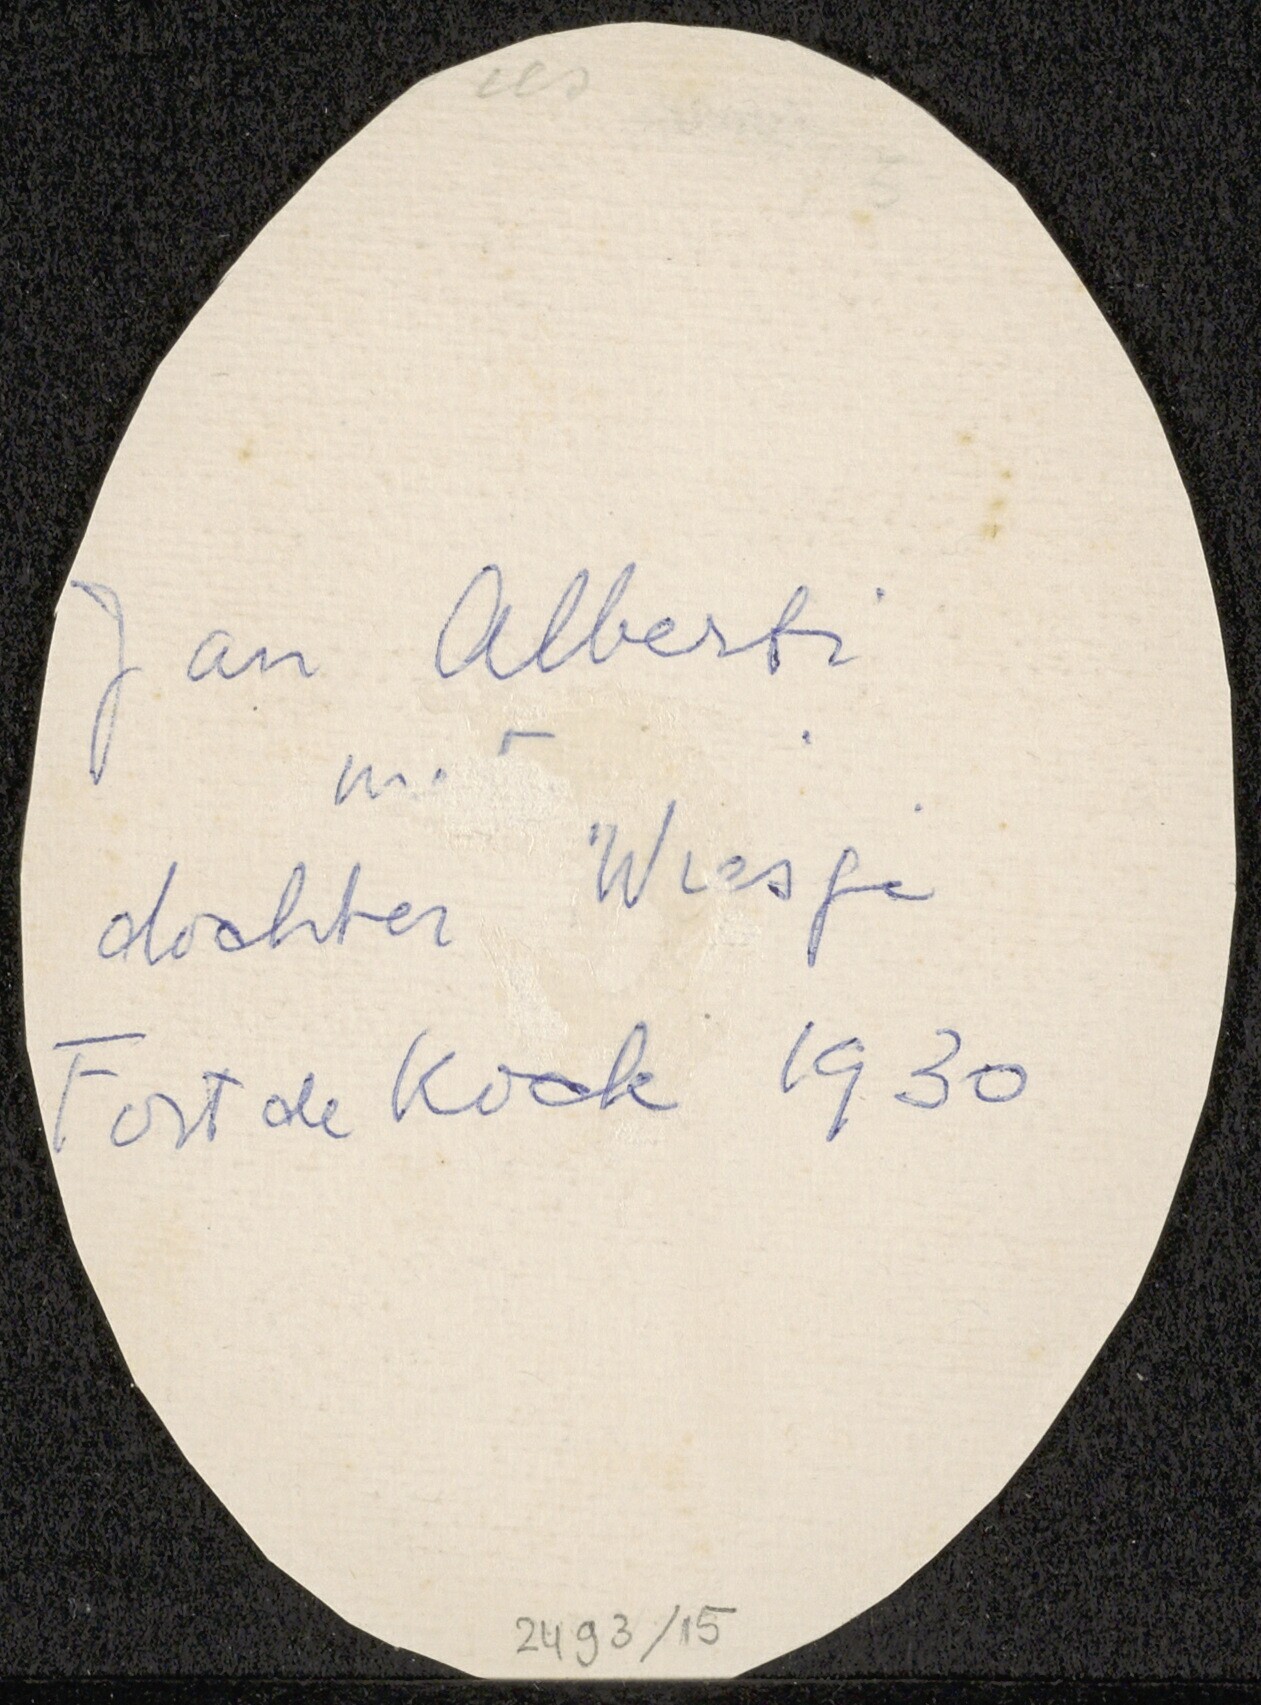 Jan Alberti
met
dochter Wiesje
Fort de Kock 1930
2493/15